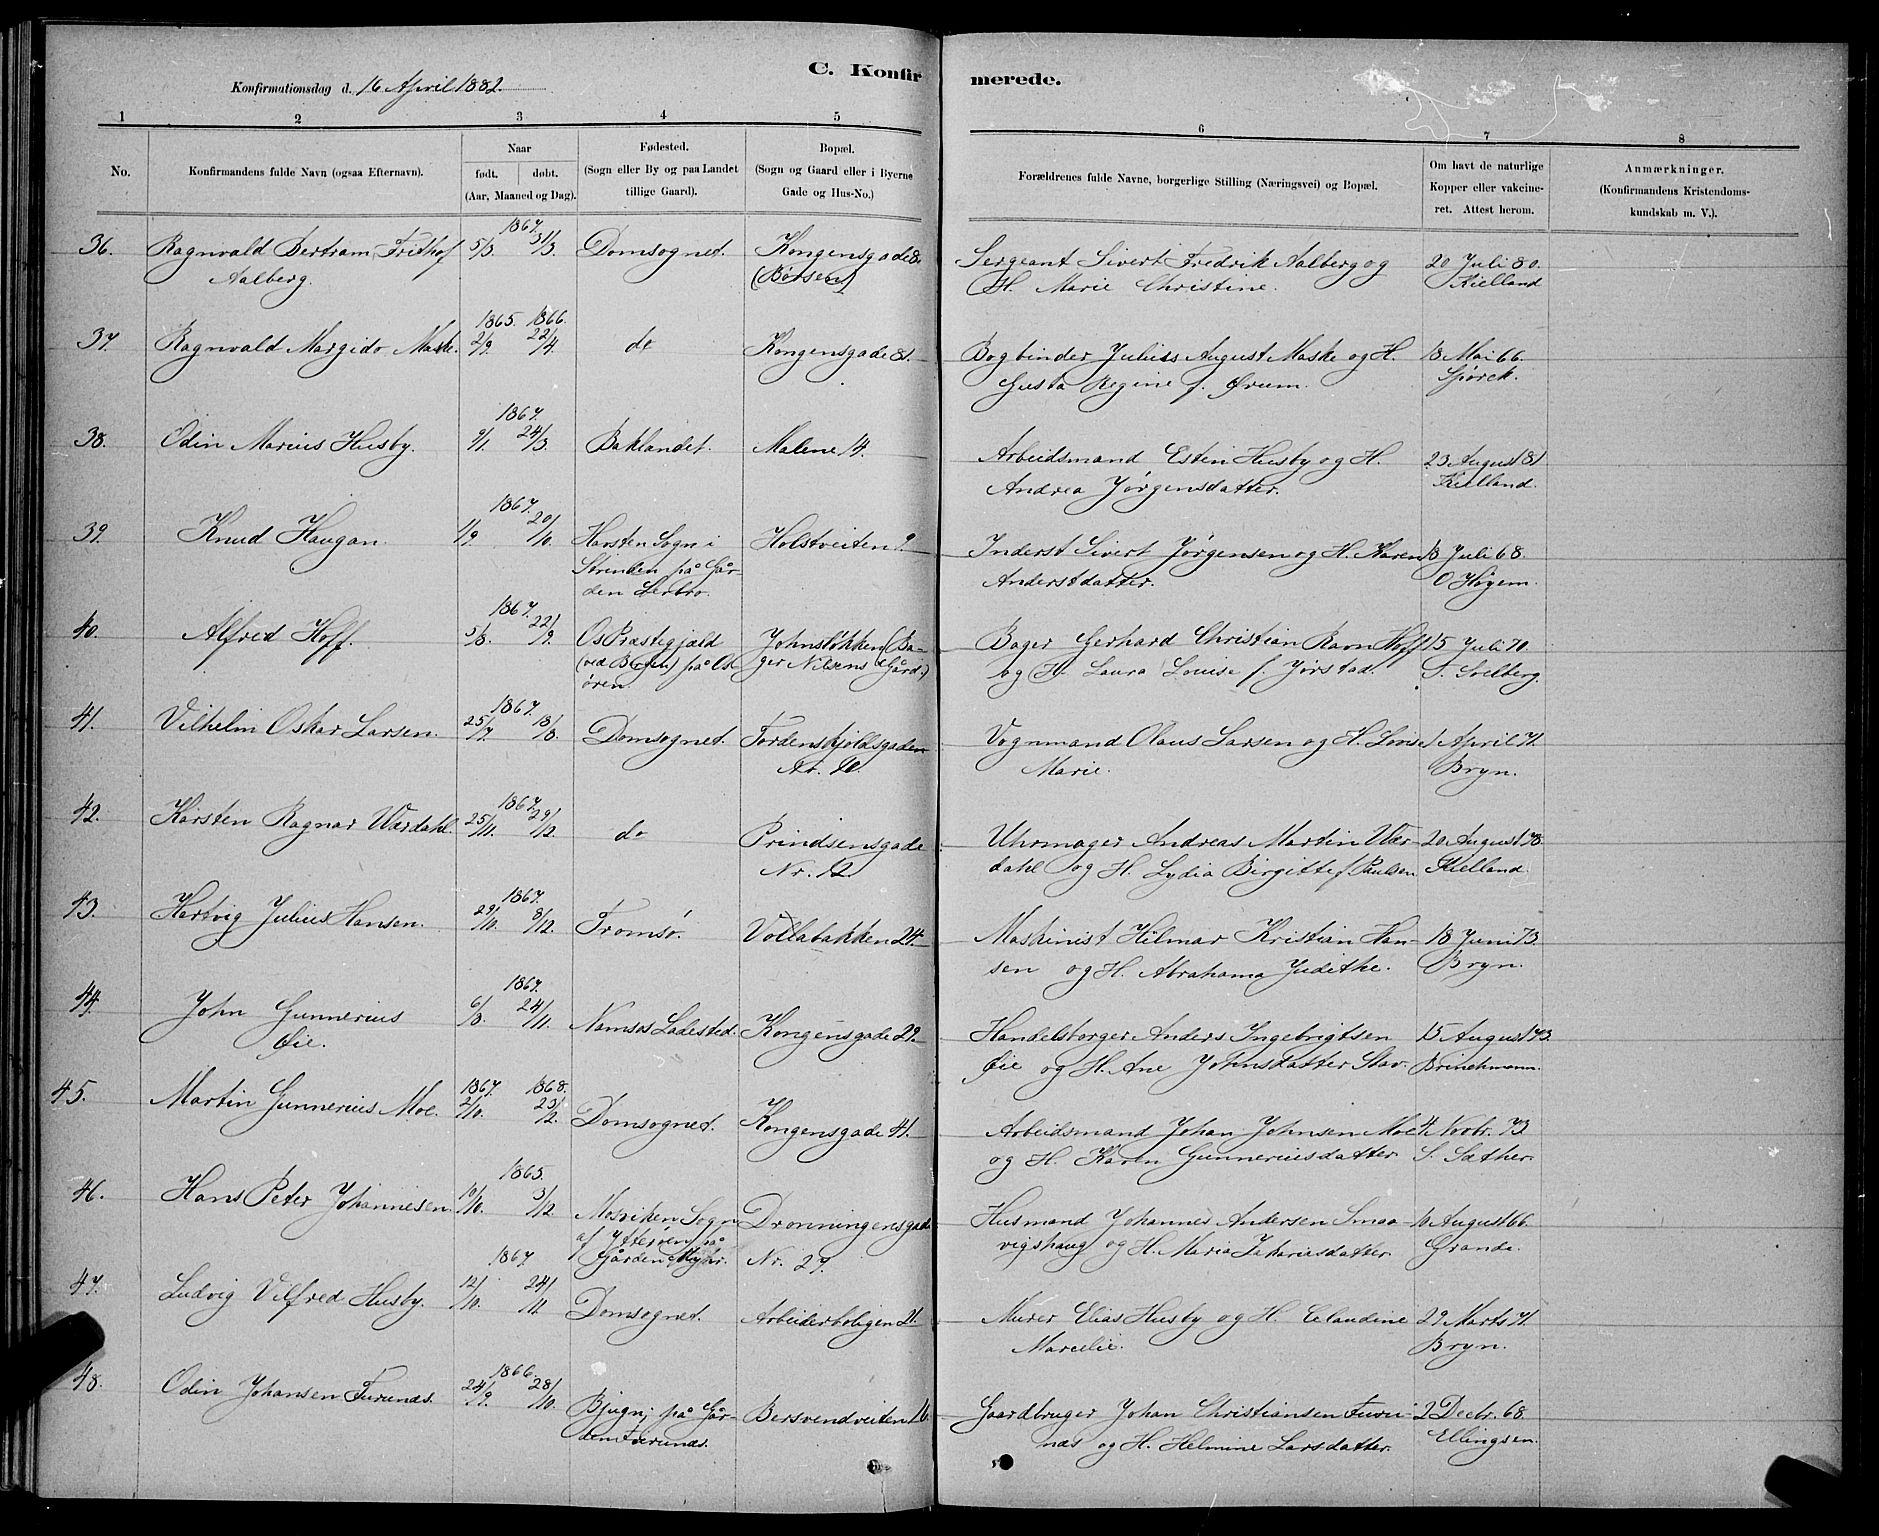 C. Konfirmerede.
Konfirmationsdag d. 16 April 1882.
1 2 3 4 5 6 7 8
No.
Konfirmandens fulde Navn (ogsaa Efternavn).
Naar
født. døbt.
(Aar, Maaned og Dag).
Fødested.
(Sogn eller By og paa Landet
tillige Gaard).
Bopæl.
(Sogn og Gaard eller i Byerne
Gade og Hus-No.)
Forældrenes fulde Navne, borgerlige Stilling (Næringsvei) og Bopæl.
Om havt de naturlige
Kopper eller vakcine-
ret. Attest herom.
Anmærkninger.
(Konfirmandens Kristendoms-
kundskab m. V.).
1867.
36. Ragnvald Bertram Frithof 5/3. 31/3. Domsognet. Kongensgade 8. Sergeant Sivert Fredrik Aalberg og 20 Juli 80.
Aalberg. (Børsen) H. Marie Christine. Kielland
1865. 1866.
37. Ragnvald Margido Maske. 2/9. 22/4. do Kongensgade 81. Bogbinder Julius August Maske og H. 18 Mai 66.
Gusta Regine f. Ørum. Sjørck.
1867.
38. Odin Marius Husby. 9/1. 24/3. Baklandet. Malene 14. Arbeidsmand Estin Husby og H. 23 August 81
Andrea Jørgensdatter. Kielland.
1867.
39. Knud Haugan. 1/9. 20/10. Havsten Sogn i Holstveiten 9. Inderst Sivert Jørgensen og H. Karen 18 Juli 68.
Strinden på Går- Anderstdatter. O Høyem.
den Lerbro.
1867.
40. Alfred Hoff. 5/8. 22/9. Os Præstegjæld Johnsløkken (Ba- Bager Gerhard Christian Ravn Hoff 15 Juli 70.
(ved Bergen) på Os ger Nilsens Gård.) og H. Laura Louise f. Jørstad. S. Solberg.
øren.
1867.
41. Vilhelm Oskar Larsen. 25/7. 18/8. Domsognet. Tordenskjoldsgaden Vognmand Olaus Larsen og H. Lovise 1 April 71.
Nr. 10. Marie. Bryn.
1867.
42. Karsten Ragnar Værdahl. 25/11. 29/12. do Prindsensgade Uhrmager Andreas Martin Vær- 20 August 78.
Nr. 12. dahl og H. Lydia Birgitte f. Paulsen. Kielland.
1867.
43. Hartvig Julius Hansen. 29/10. 8/12. Tromsø. Vollabakken 24. Maskinist Hilmar Kristian Han- 18 Juni 73.
sen og H. Abrahama Judithe. Bryn.
1867.
44. John Gunnerius 6/8. 24/11. Namsos Ladested. Kongensgade 29. Handelsborger Anders Ingebrigtsen 15 August 73.
Øie. Øie og H. Ane Johnsdatter Stav. Brinchmann.
1867. 1868.
45. Martin Gunnerius Moe. 2/10. 23/2. Domsognet. Kongensgade 41. Arbeidsmand Johan Johnsen Moe 4 Novbr. 73
og H. Karen Gunneriusdatter. S. Sæther.
1865.
46. Hans Peter Johannesen. 10/10. 3/12. Mosviken Sogn Dronningensgade Husmand Johannes Andersen Smaa- 10 August 66.
af Ytterøen på vigshaug og H. Maria Zakariasdatter. Grande.
Gården Myhr. Nr. 27.
1867.
47. Ludvig Vilfred Husby. 12/10. 24/11. Domsognet. Arbeiderboligen 21. Murer Elias Husby og H. Claudine 29 Marts 71.
Marcelie. Bryn.
1866.
48. Odin Johansen Furunæs. 24/9. 28/10. Bjugn, på Går- Bersvendveiten 16. Gaardbruger Johan Christiansen Furu- 2 Decbr. 68.
den Furunæs. næs og H. Helmine Larsdatter. Ellingsen.